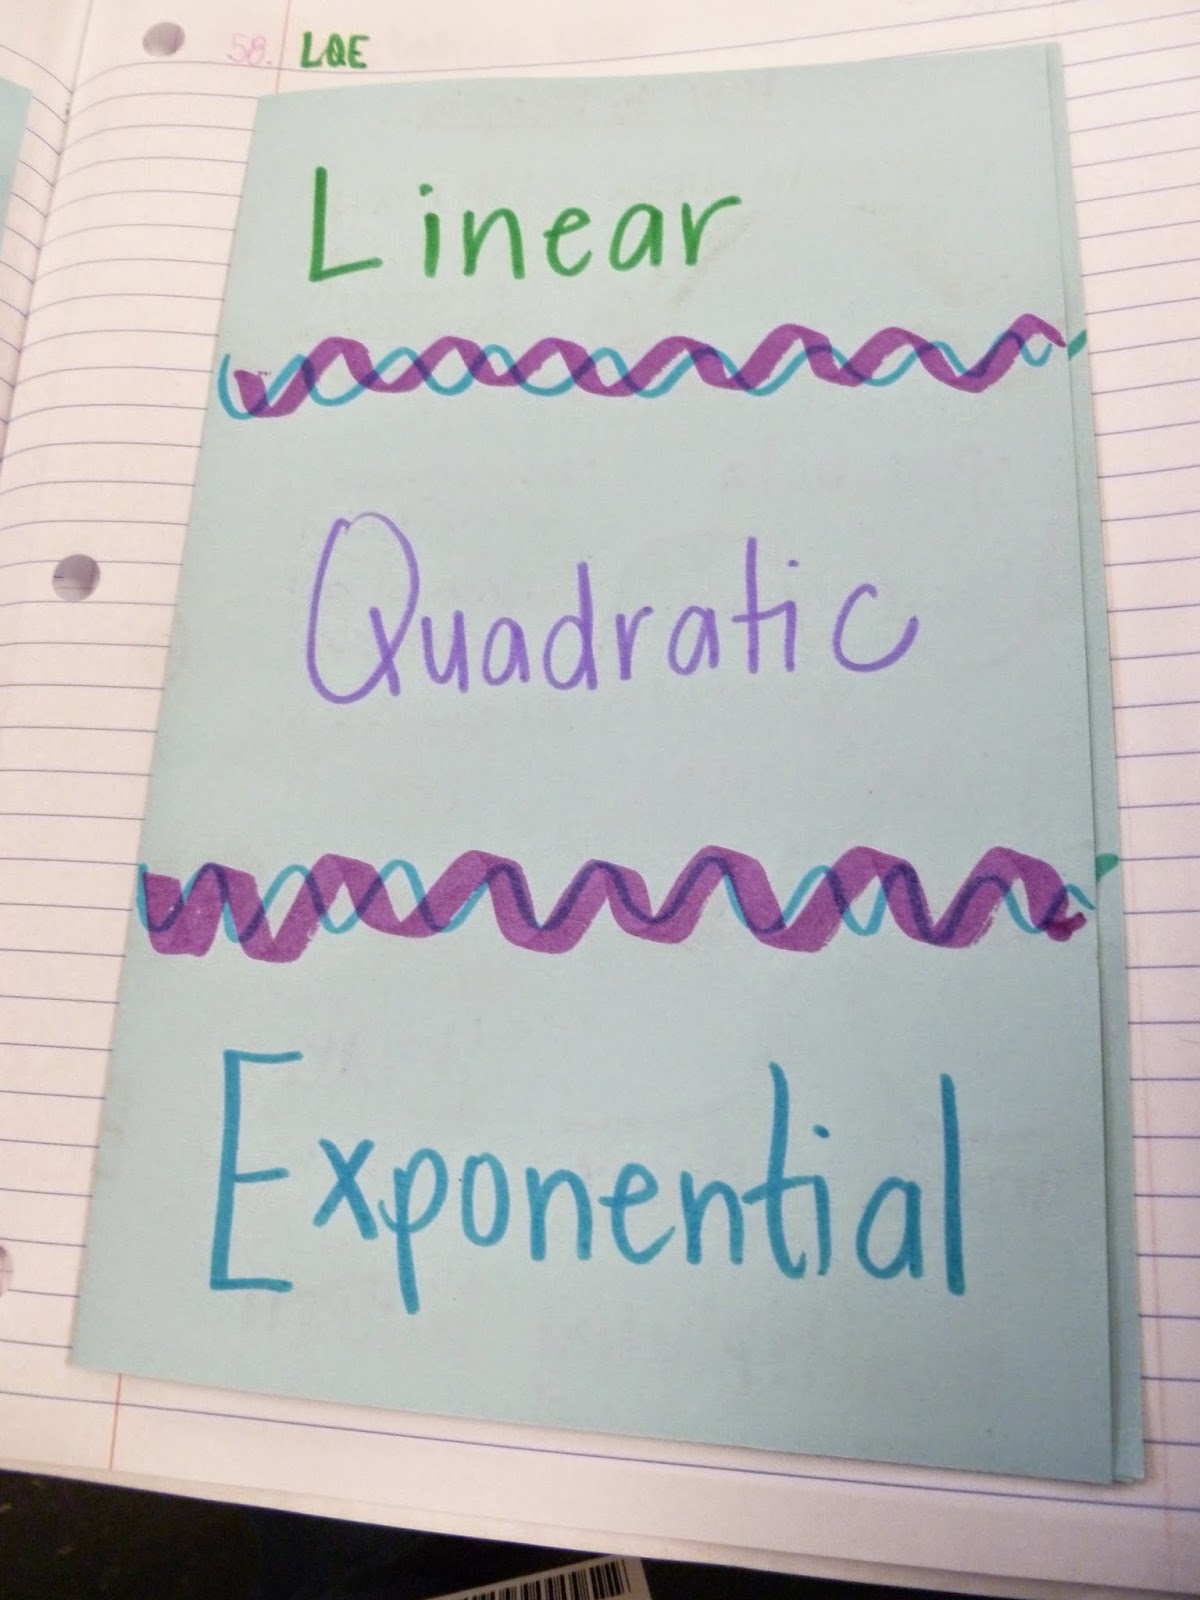 58. LQE
Linear
Quadratic
Exponential